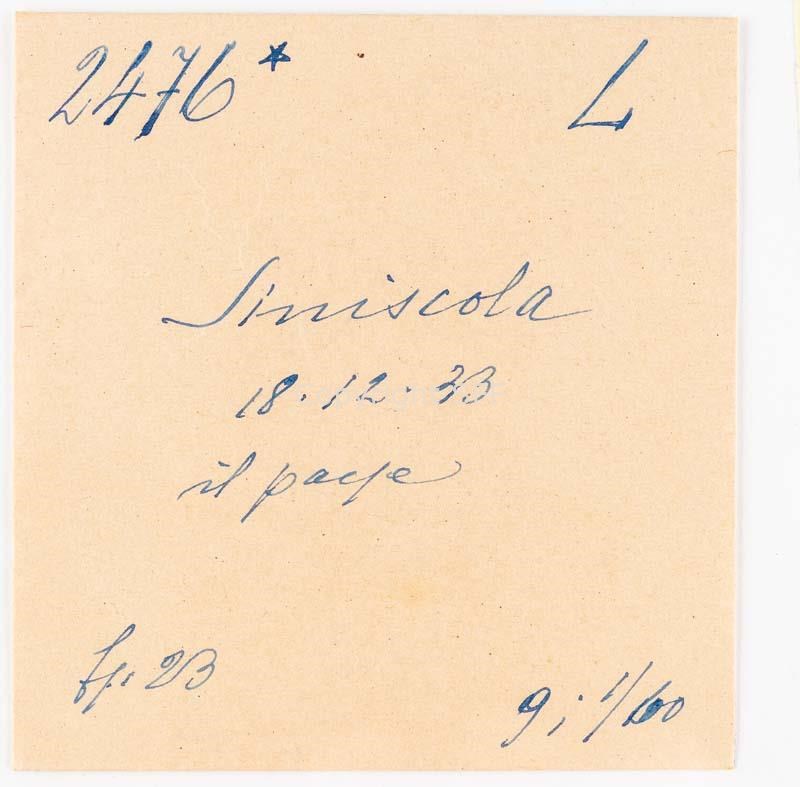 2476* L
Siniscola
18.12.33
il paese
fp. 23
9; 1/60